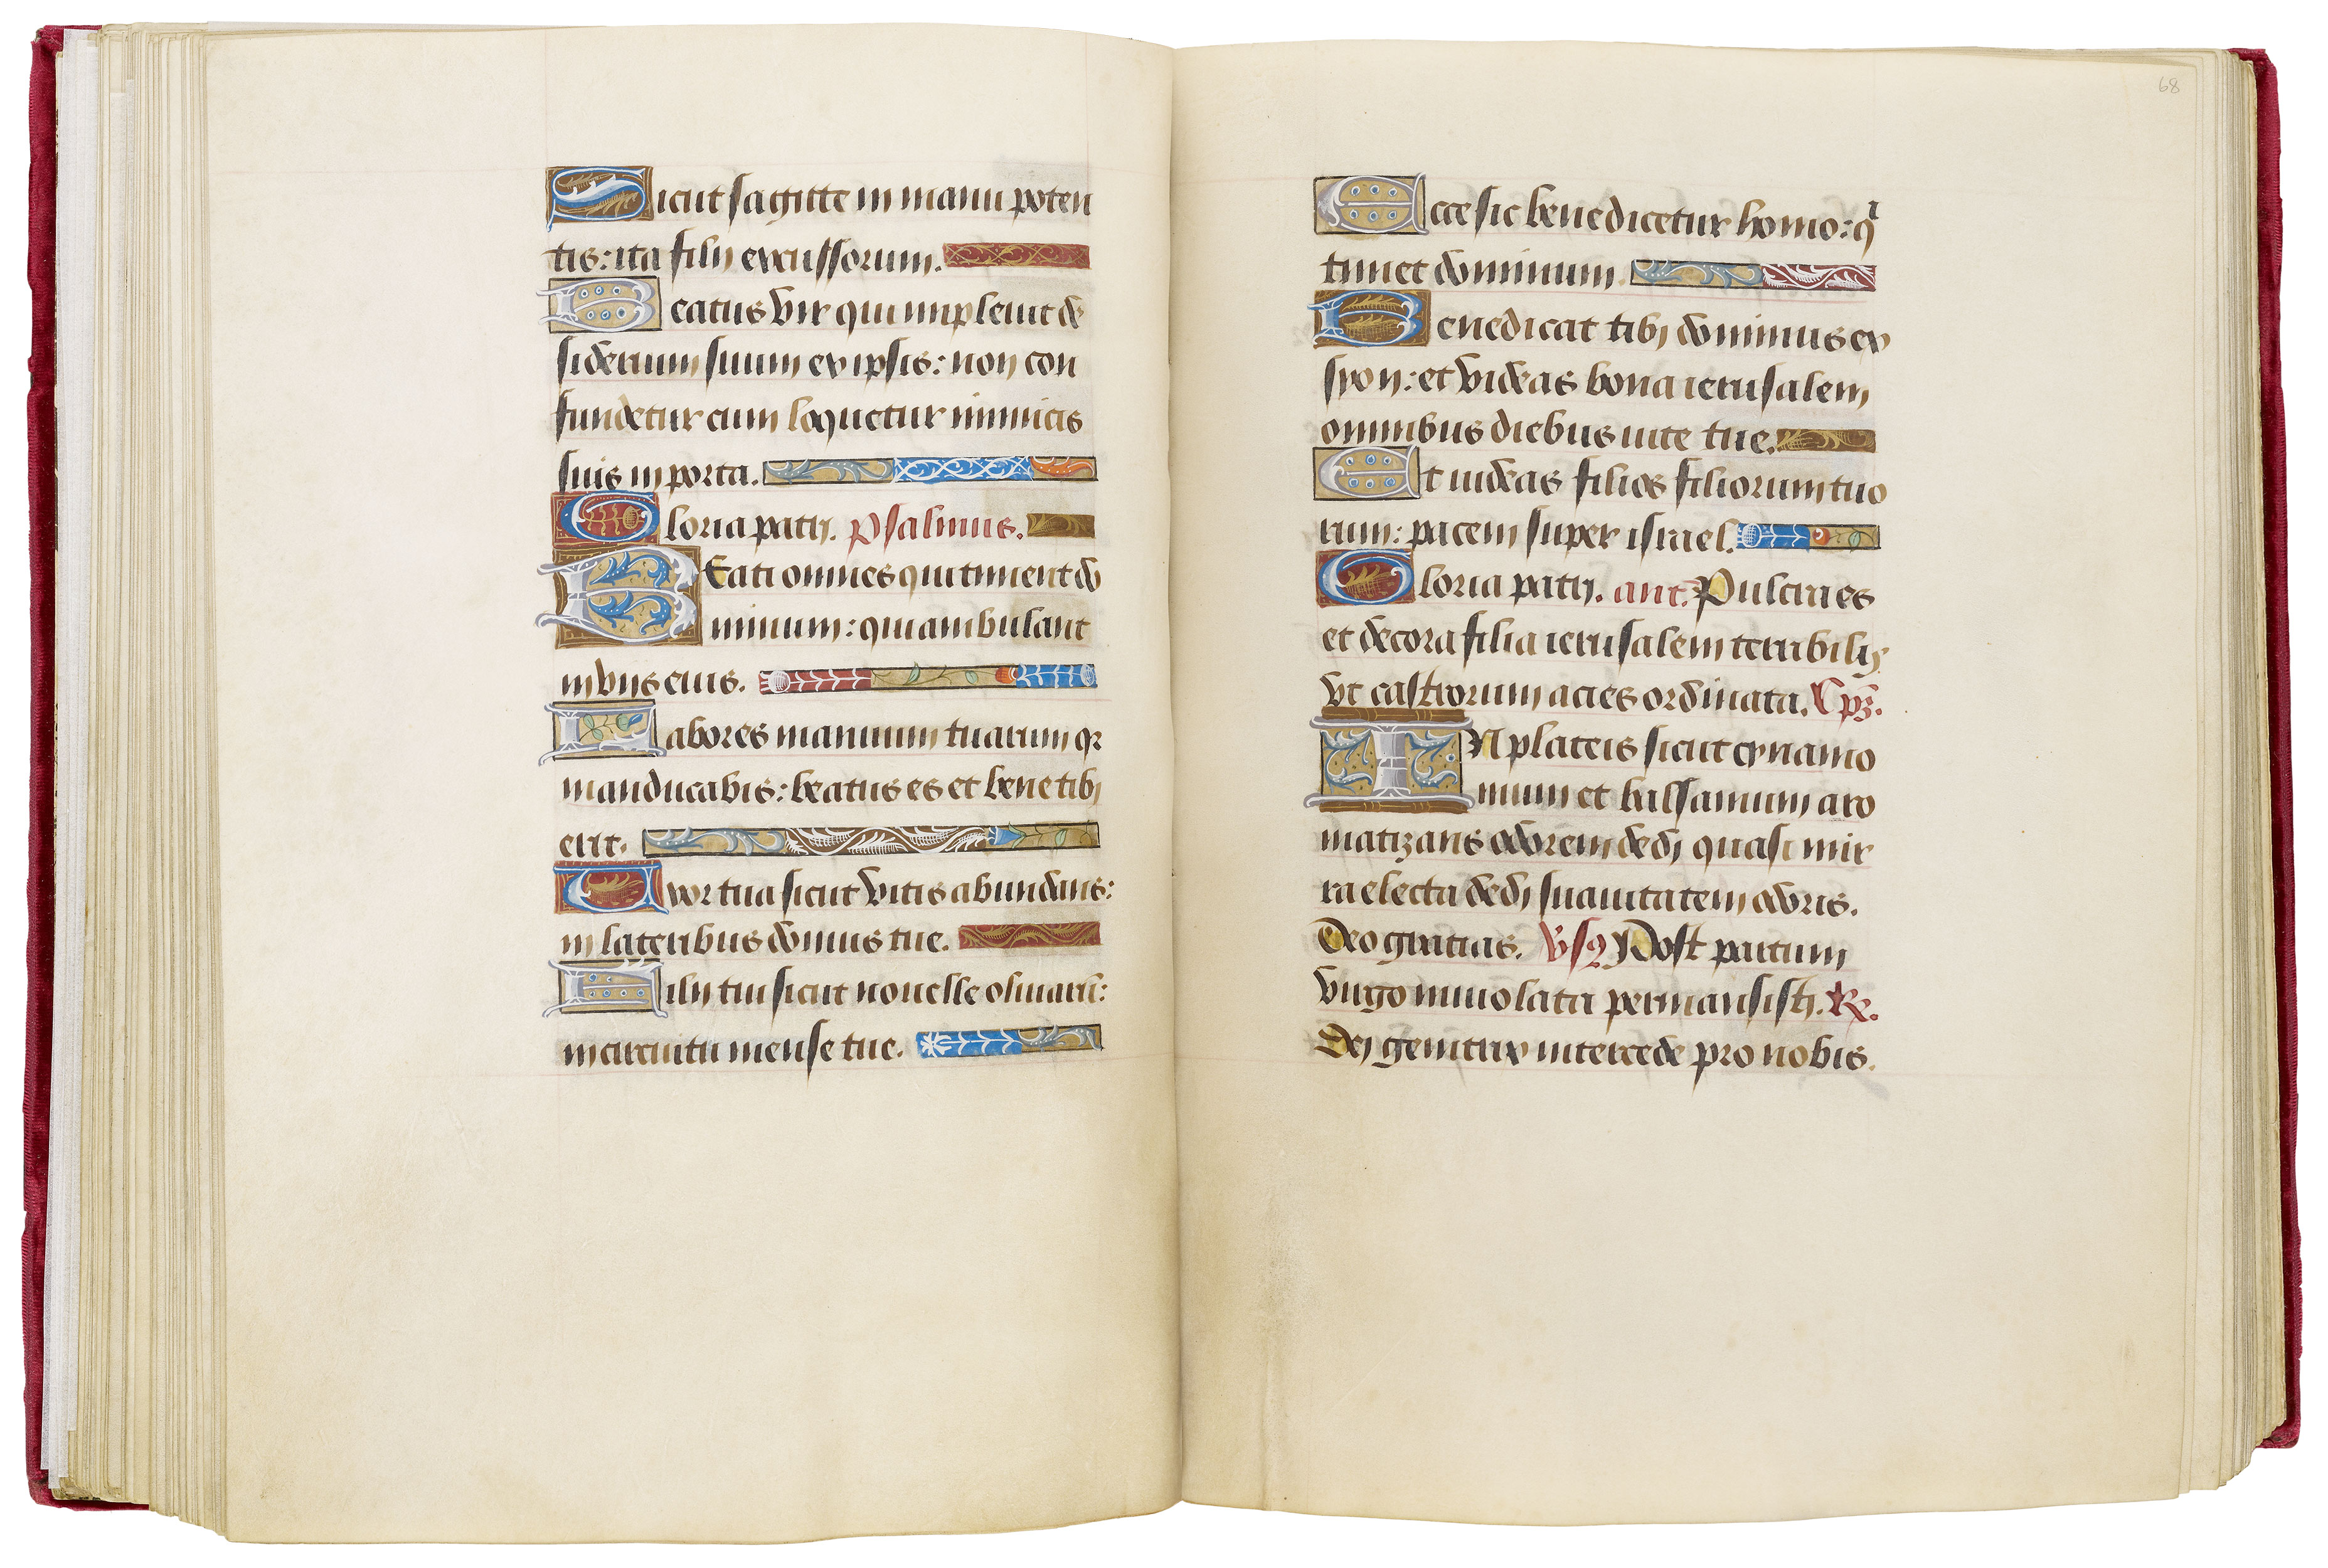 Sicut sagitte in manu poten
tis: ita filij excussorum.
Beatus vir qui impleuit de
siderium suum ex ipsis: non con
fundetur cum loquetur inimicis
suis in porta.
Gloria patri. Psalmus.
BEati omnes qui timent do
minum: qui ambulant
in vijs eius.
Labores manuum tuarum qr
manducabis: beatus es et bene tibi
erit.
Vxor tua sicut vitis abundans:
in lateribus domus tue.
Filij tui sicut nouelle oliuarū:
in circuitu mense tue.
68
Ecce sic benedicetur homo: qⁱ
timet dominum.
Benedicat tibi dominus ex
syon: et videas bona ierusalem
omnibus diebus uite tue.
Et uideas filios filiorum tuo
rum: pacem super israel.
Gloria patri. ant. Pulcra es
et decora filia ierusalem terribilis
vt castrorum acies ordinata.
IN plateis sicut cynamo
mum et balsamum aro
matizans odorem dedi quasi mir
ra electa dedi suauitatem odoris.
Deo gratias. Post partum
virgo inuiolata permansisti. R.
Dei genitrix intercede pro nobis.